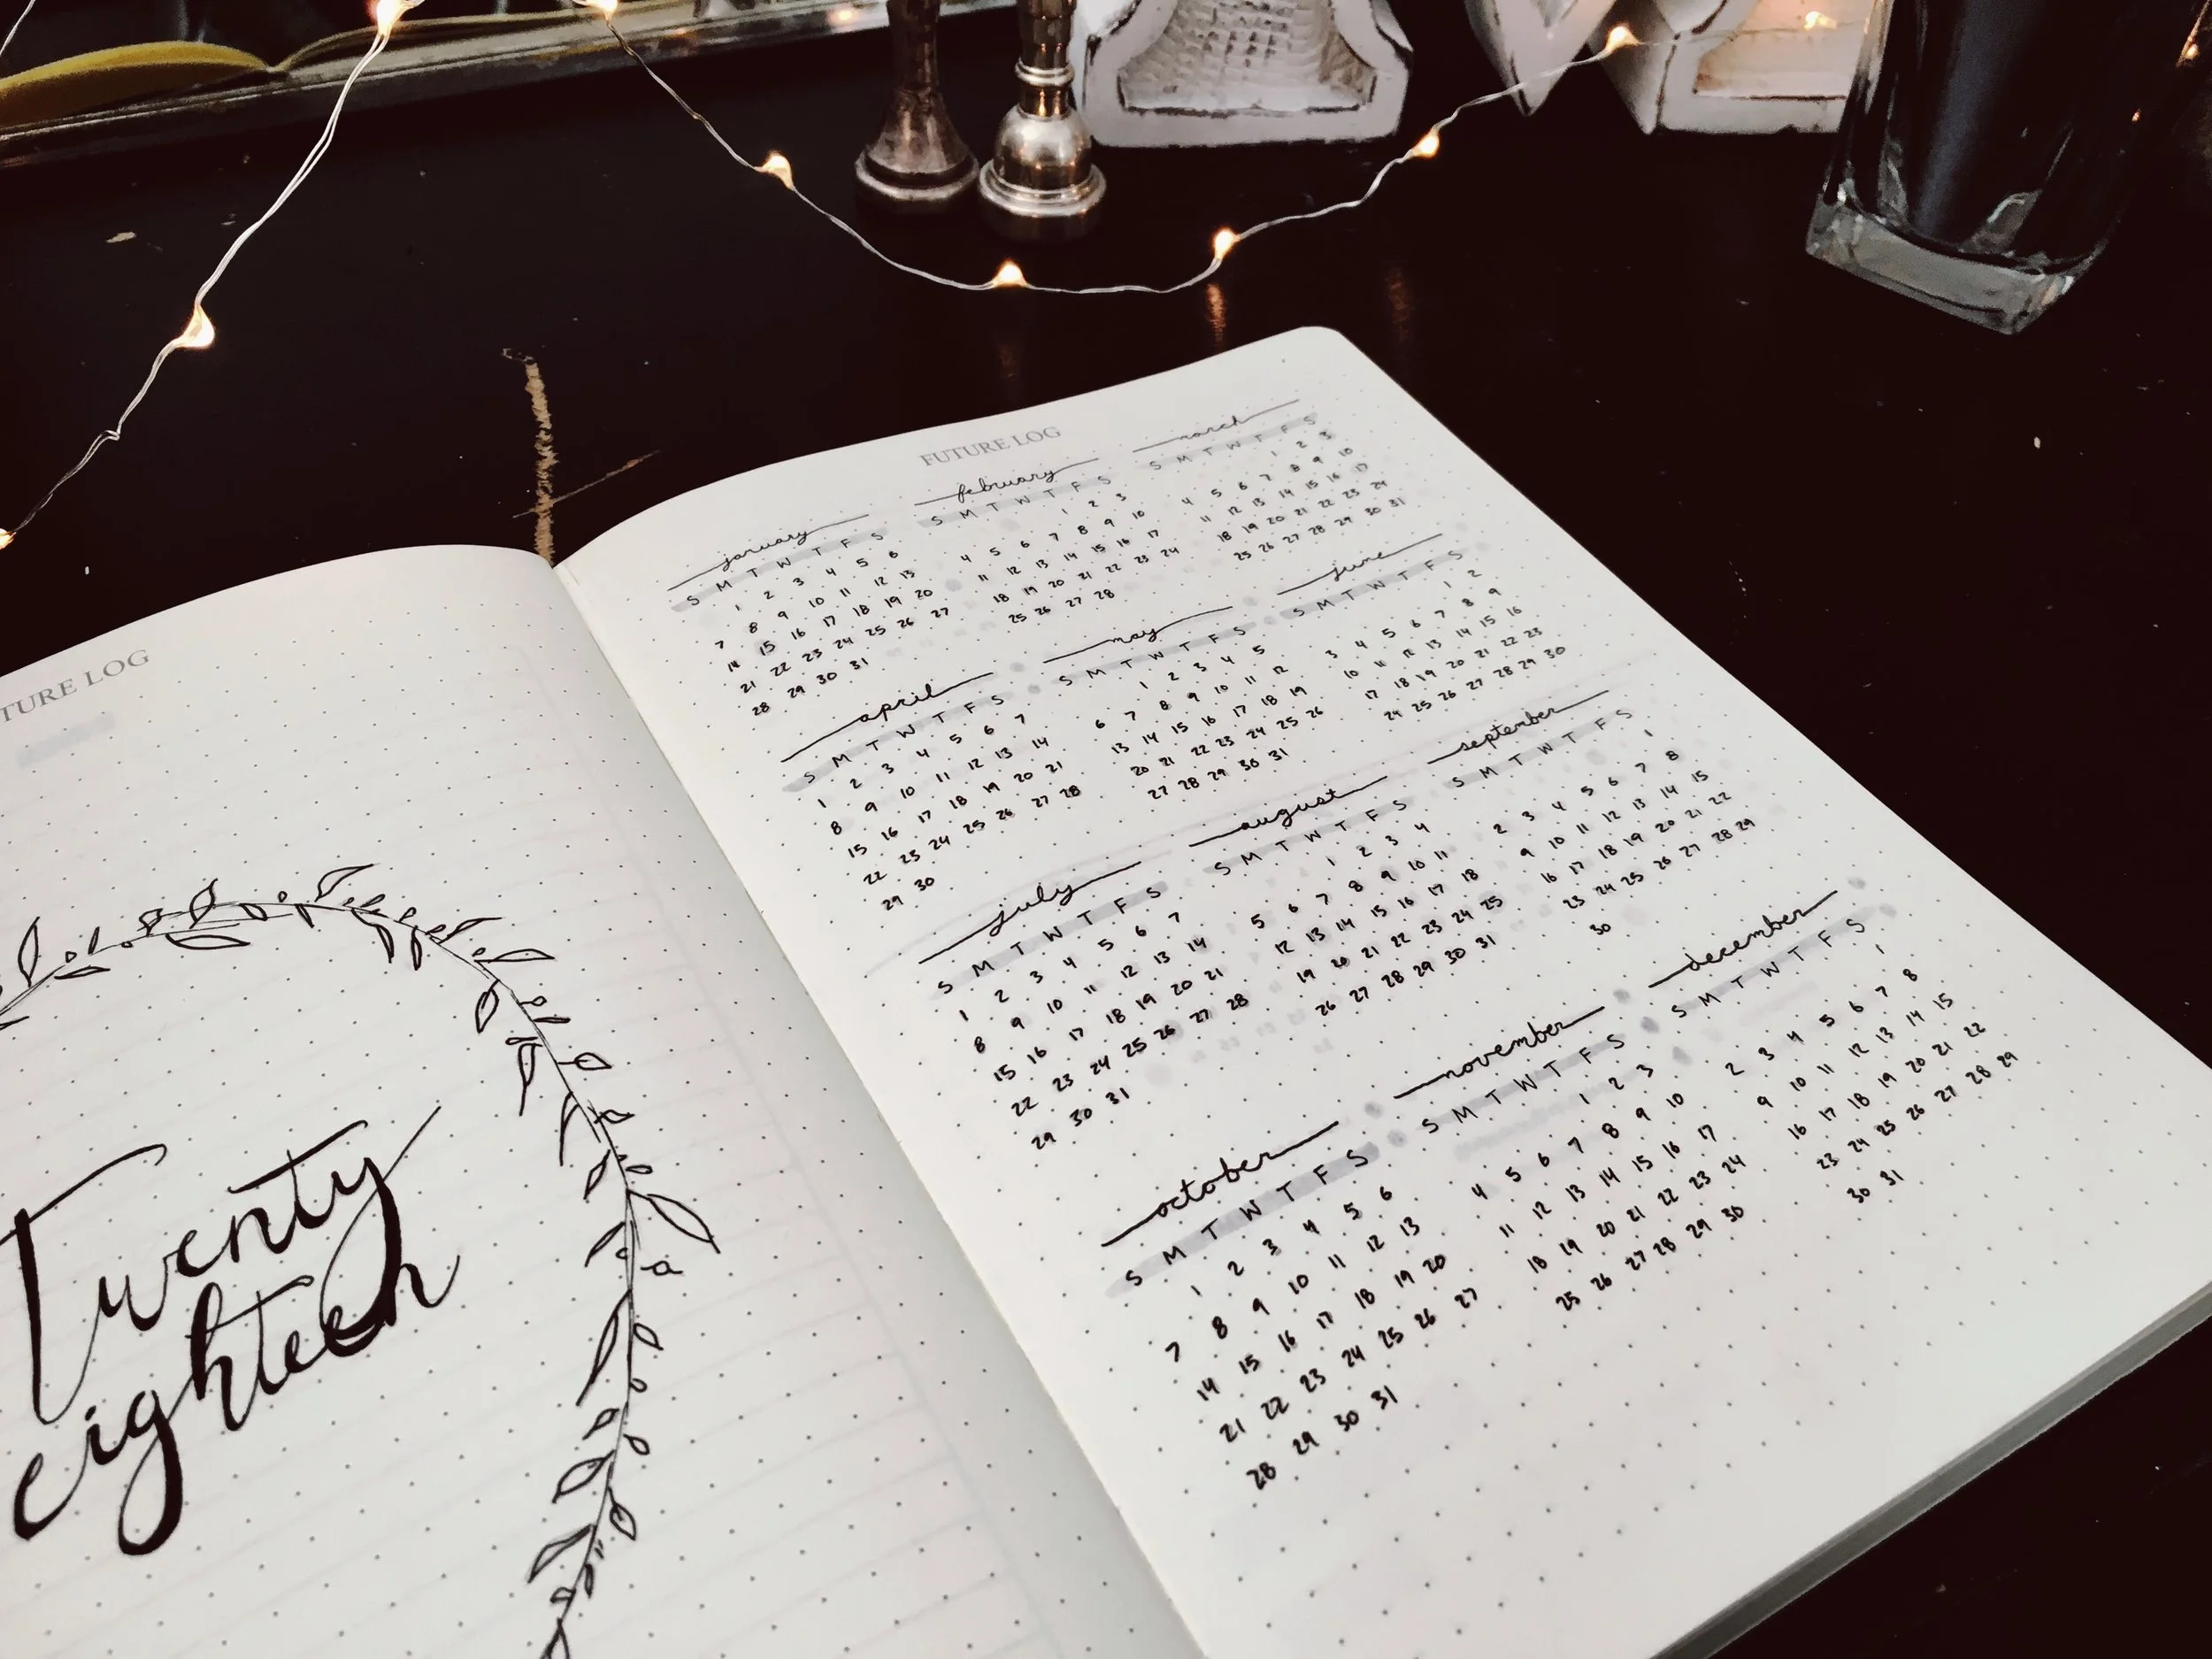 TURE LOG
Twenty
eighteen
FUTURE LOG
january
S M T W T F S
1 2 3 4 5 6
7 8 9 10 11 12 13
14 15 16 17 18 19 20
21 22 23 24 25 26 27
28 29 30 31
february
S M T W T F S
1 2 3
4 5 6 7 8 9 10
11 12 13 14 15 16 17
18 19 20 21 22 23 24
25 26 27 28
march
S M T W T F S
1 2 3
4 5 6 7 8 9 10
11 12 13 14 15 16 17
18 19 20 21 22 23 24
25 26 27 28 29 30 31
april
S M T W T F S
1 2 3 4 5 6 7
8 9 10 11 12 13 14
15 16 17 18 19 20 21
22 23 24 25 26 27 28
29 30
may
S M T W T F S
1 2 3 4 5
6 7 8 9 10 11 12
13 14 15 16 17 18 19
20 21 22 23 24 25 26
27 28 29 30 31
june
S M T W T F S
1 2
3 4 5 6 7 8 9
10 11 12 13 14 15 16
17 18 19 20 21 22 23
24 25 26 27 28 29 30
july
S M T W T F S
1 2 3 4 5 6 7
8 9 10 11 12 13 14
15 16 17 18 19 20 21
22 23 24 25 26 27 28
29 30 31
august
S M T W T F S
1 2 3 4
5 6 7 8 9 10 11
12 13 14 15 16 17 18
19 20 21 22 23 24 25
26 27 28 29 30 31
september
S M T W T F S
1
2 3 4 5 6 7 8
9 10 11 12 13 14 15
16 17 18 19 20 21 22
23 24 25 26 27 28 29
30
october
S M T W T F S
1 2 3 4 5 6
7 8 9 10 11 12 13
14 15 16 17 18 19 20
21 22 23 24 25 26 27
28 29 30 31
november
S M T W T F S
1 2 3
4 5 6 7 8 9 10
11 12 13 14 15 16 17
18 19 20 21 22 23 24
25 26 27 28 29 30
december
S M T W T F S
1
2 3 4 5 6 7 8
9 10 11 12 13 14 15
16 17 18 19 20 21 22
23 24 25 26 27 28 29
30 31